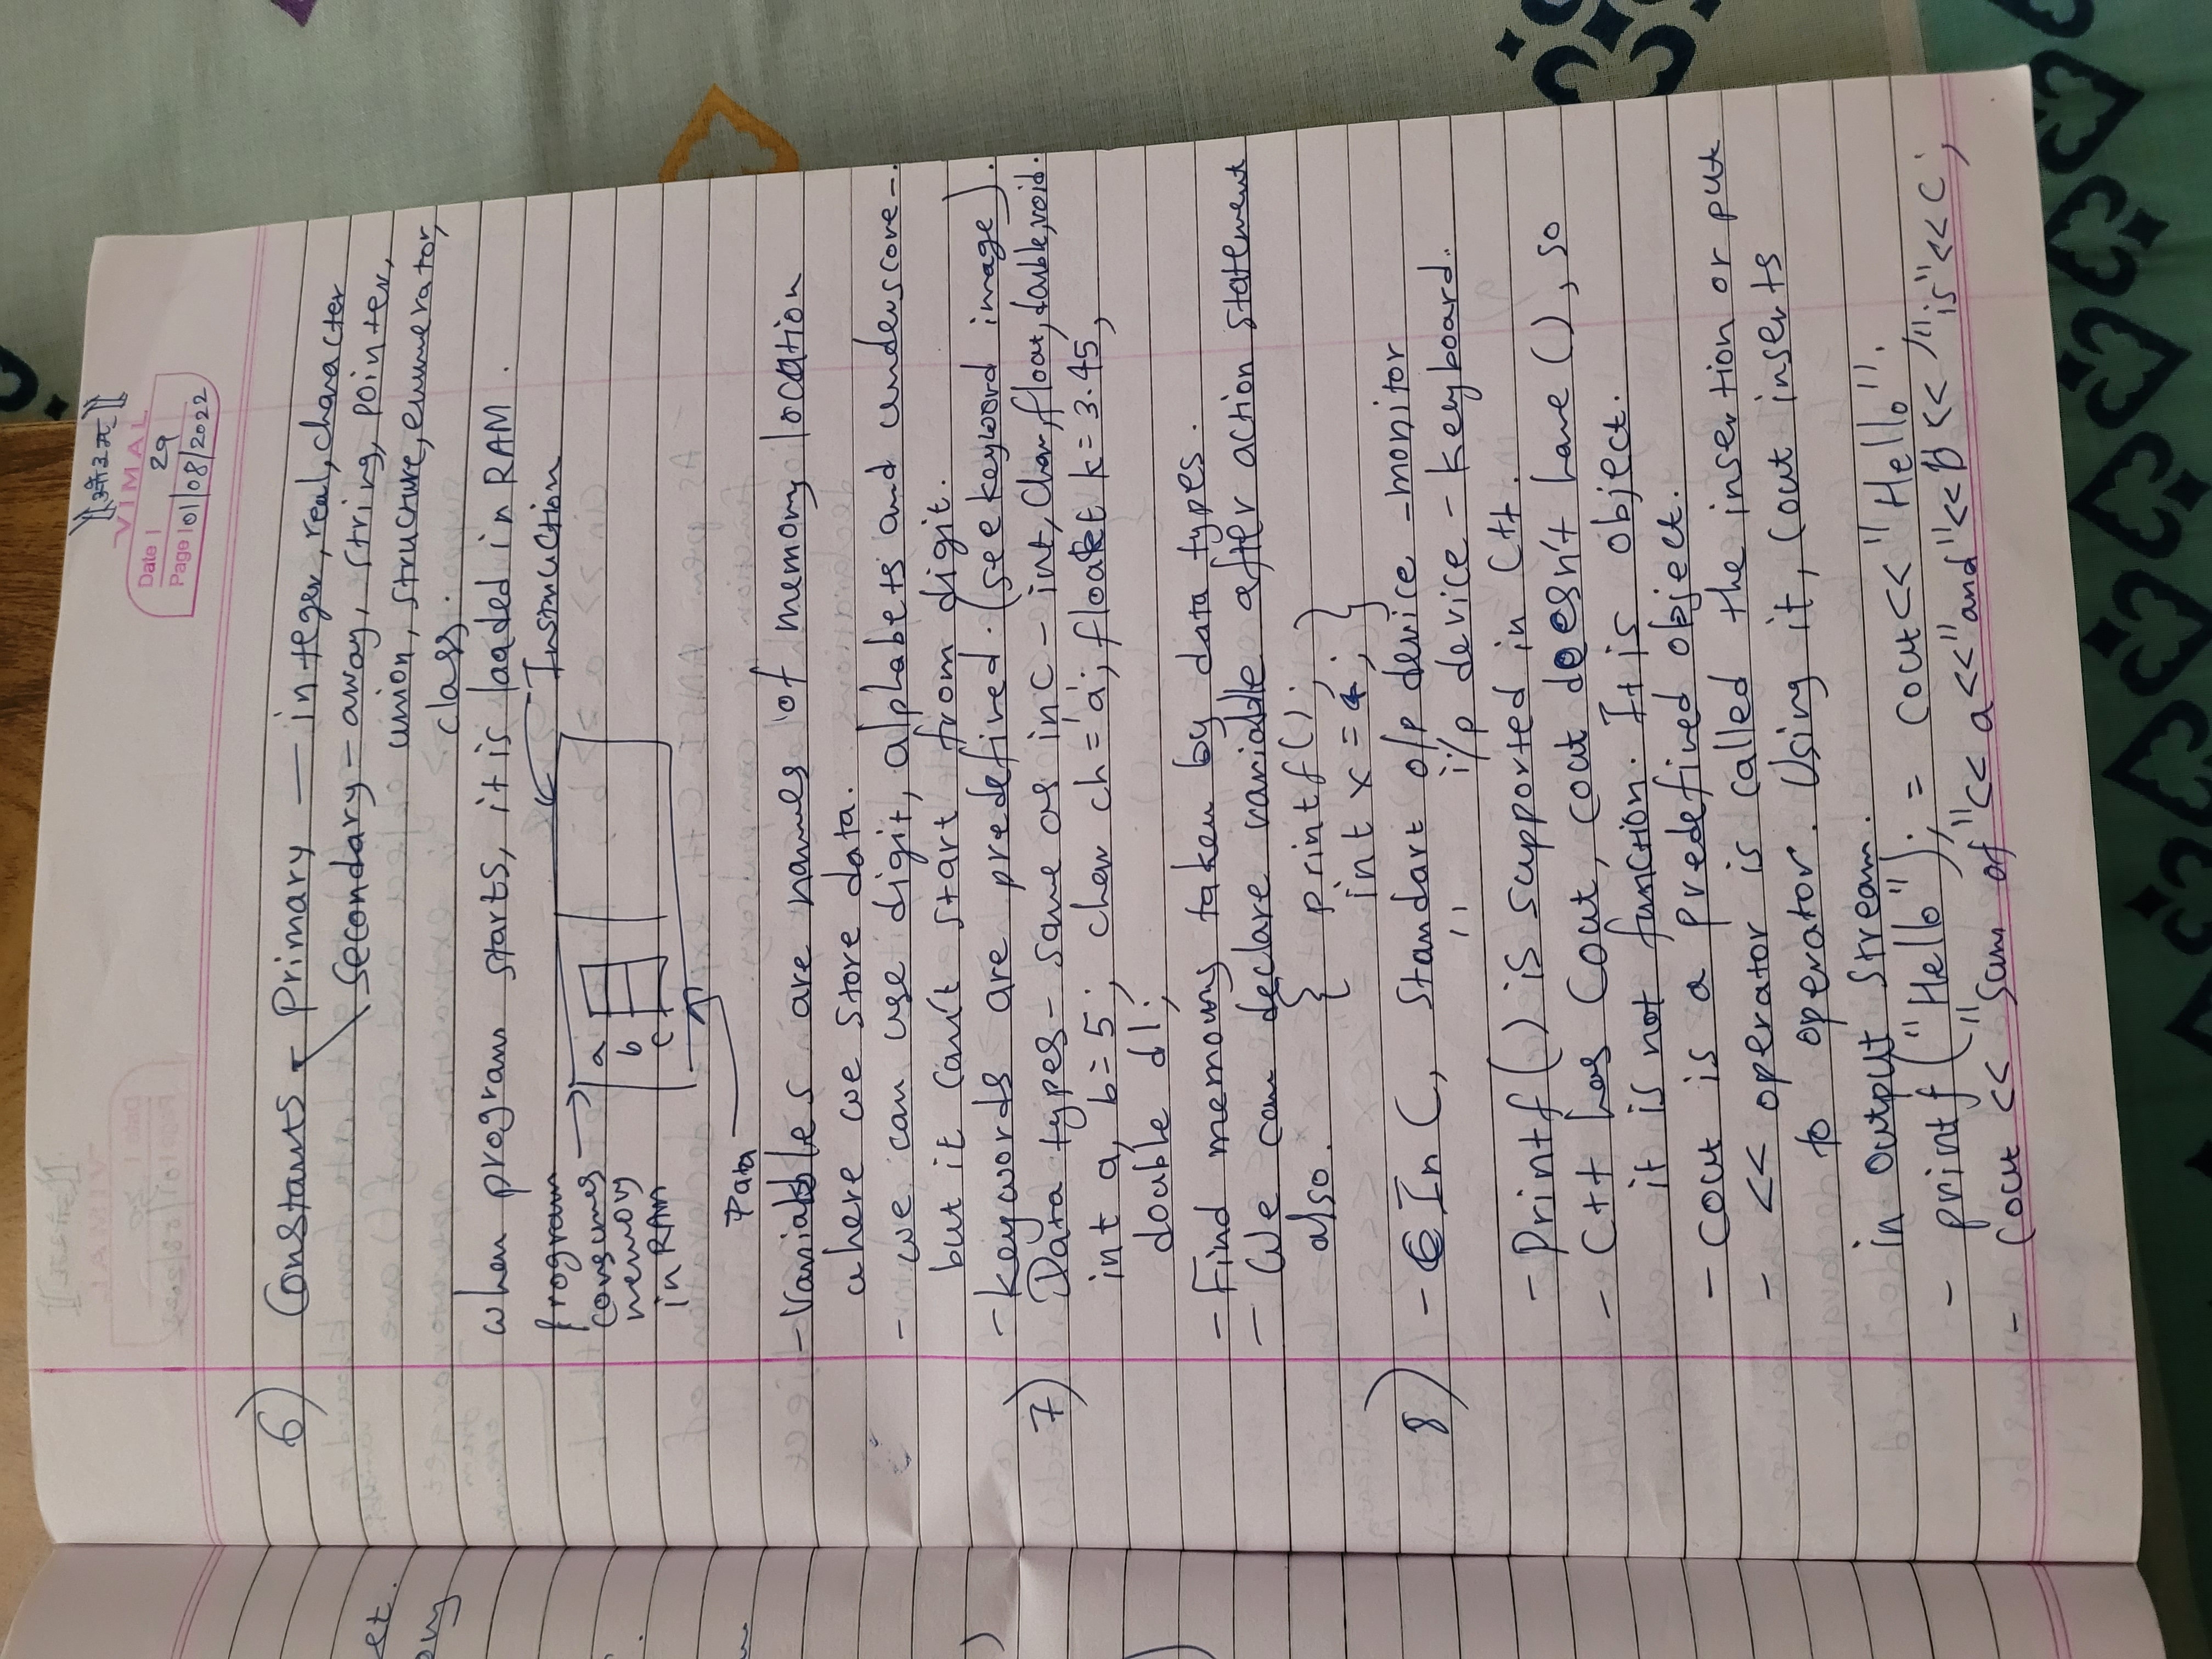 ][ओ३म्][
VIMAL
Date | 29
Page | 01/08/2022
6) Constants - Primary — integer, real, character
Secondary - array, string, pointer,
union, structure, enumerator,
class.
when program starts, it is loaded in RAM.
Program
consumes
memory
in RAM
Instruction
a
b
c
Data
- Variables are names of memory location
where we store data.
- we can use digit, alphabets and underscore -.
but it can't start from digit.
- keywords are predefined. (see keyword image).
7) Data types - same as in C - int, char, float, double, void.
int a, b=5; char ch='a'; float k=3.45,
double d1;
- Find memory taken by data types.
- We can declare variable after action statement
also. { printf();
int x = 4; }
8) - In C, Standart o/p device - monitor
" i/p device - keyboard.
- Printf() is supported in C++.
- C++ has Cout, cout doesn't have (), so
it is not function. It is object.
- cout is a predefined object.
- << operator is called the insertion or put
to operator. Using it, cout inserts
in output stream.
- printf("Hello"); = cout<<"Hello";
- cout << "Sum of "<< a<<"and"<<b<<"is"<<c;
et.